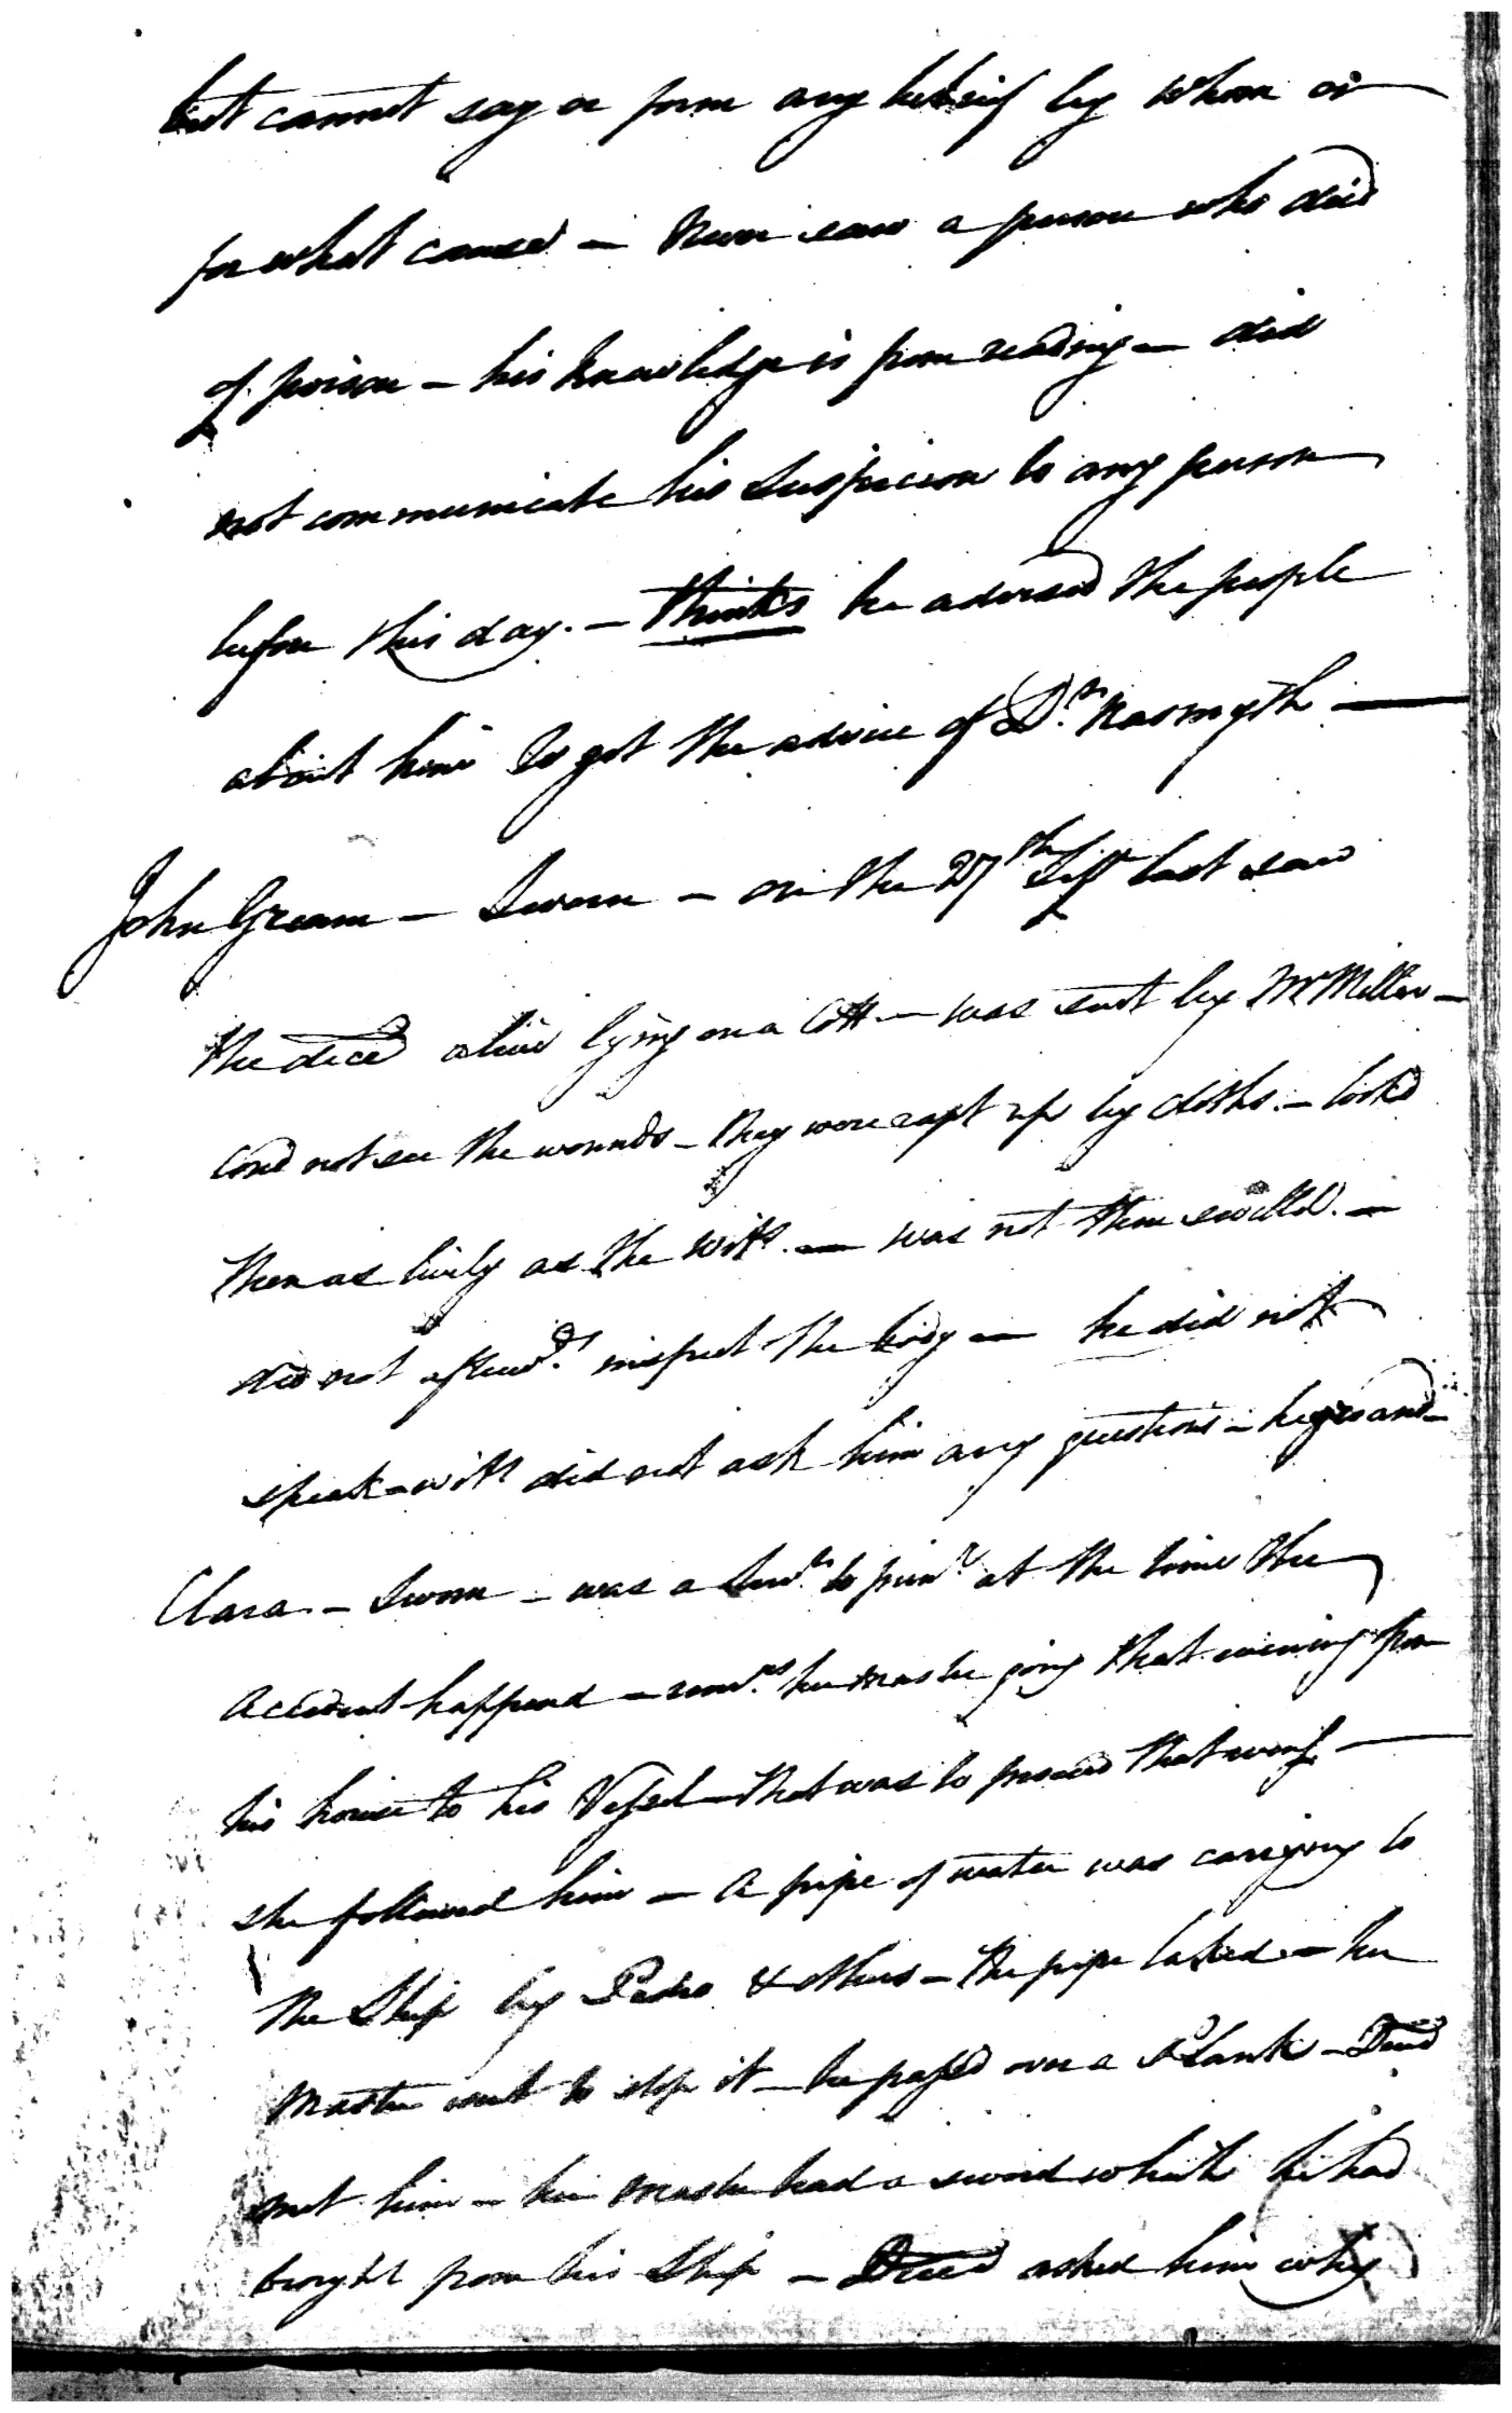 but cannot say or form any beleif by whom or
for what cause — Never saw a person who died
of poison — his knowledge is from reading — did
not communicate his Suspicion to any person
before this day. — thinks he advised the people
about him to get the advice of Dr. Nasmyth —
John Gream — Sworn — on the 27th Sept last saw
the deced alive lying on a Cott — was sent by Mr Miller —
coud not see the wounds — they were rapt up by cloths. — look'd
then as lively as the Witss. — was not then swelled. —
did not afterwds. inspect the body — he did not
speak — witss did not ask him any questions —
Clara — Sworn — was a Servt. to prisr. at the time the
accident happend — remrs. her master going that evening from
his house to his Vessel — that was to proceed that eveng —
she followed him — a pipe of water was carrying to
the Ship by Pedro & others — the pipe leaked — her
master went to stop it — he passed over a Plank — Deced
met him — her master had a sword which he had
brought from his Ship — Deced asked him why